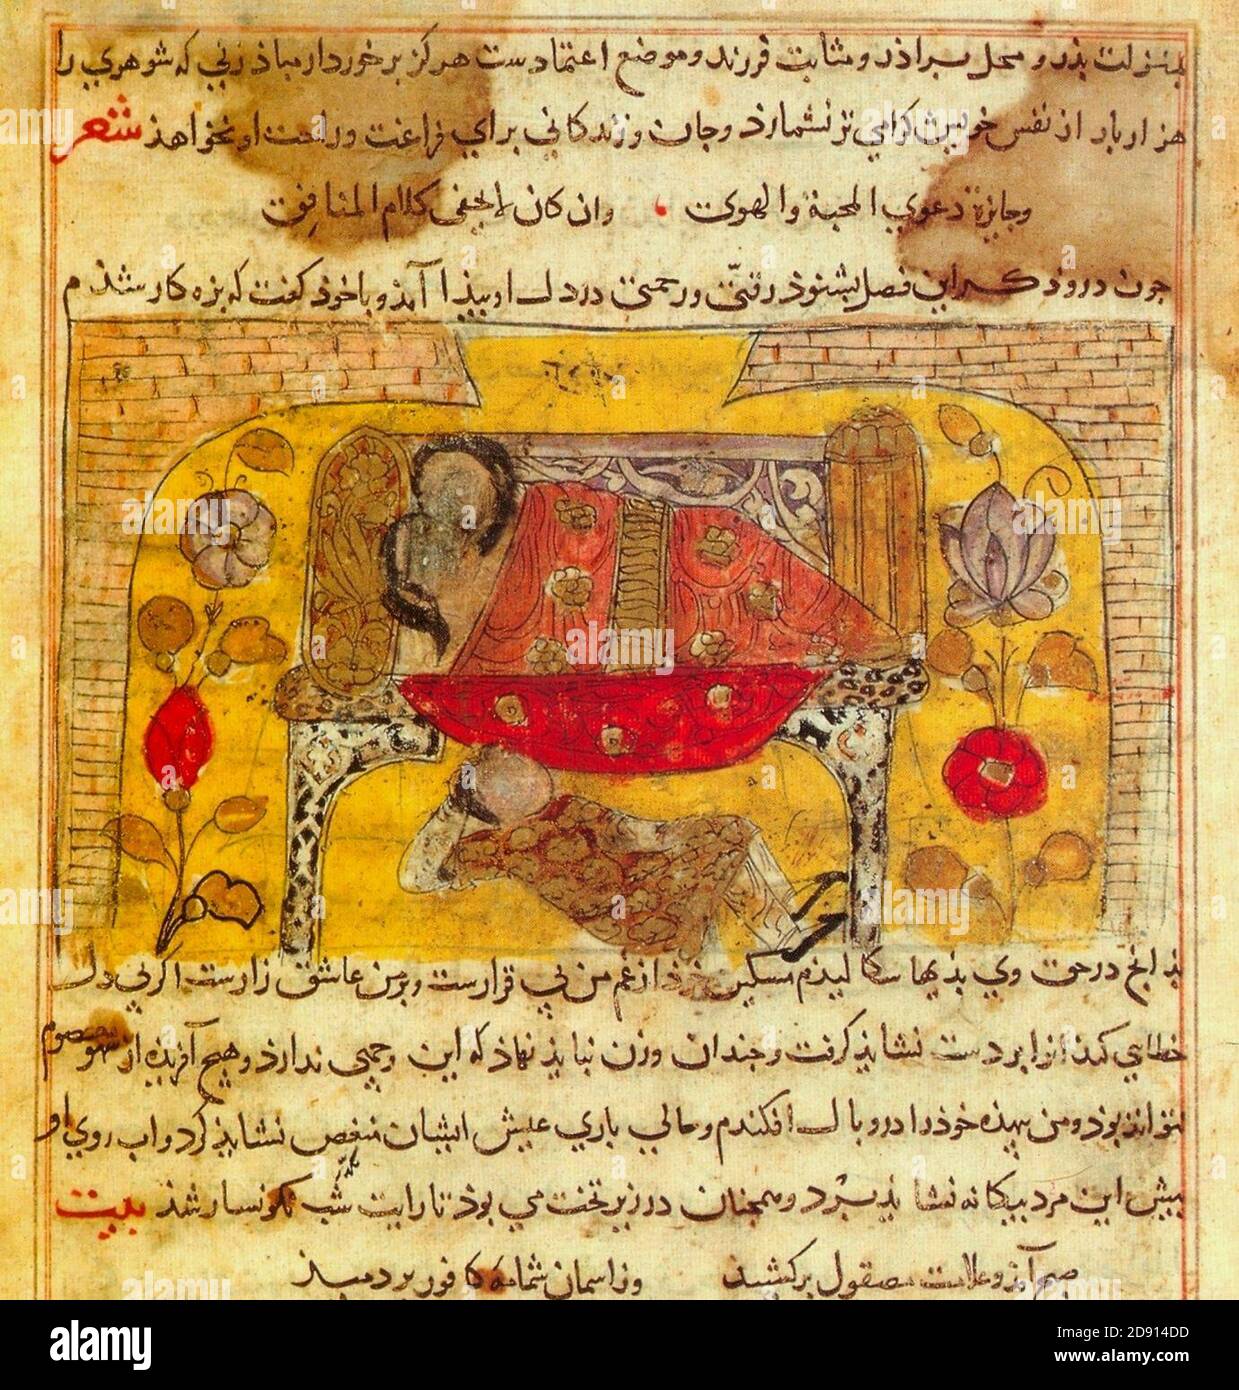 بمنزلت پذر و محل براذر و مثابت فرزند و موضع اعتمادست هرگز برخوردار مباذ زنی که شوهری را
هزار بار از نفس خویش گرامی تر نشمارد و جان و زندگانی برای فراغت و راحت او نخواهذ شعر
وجایزة دعوی المحبة والهوی وان کان لا یخفی کلام المنافق
جون دروذگر این فصل بشنوذ رقتی و رحمتی در دل او پیذا آمذ و با خوذ گفت که بزه کار شذم
بذانج در حق وی می سگالیذم مسکین خوذ از غم من بی قرارست و بر من عاشق زارست اگر بی دل
خطایی کند آنرا بر دست نشایذ گرفت و جندان وزن نبایذ نهاذ که این وجهی ندارد و هیچ آفریذه از سهو معصوم
نتواند بوذ و من بیهذه خوذ را در وبال افکندم و حالی باری عیش ایشان منغص نشایذ کرد و آب روی او
پیش این مرد بیگانه نشایذ برد و همچنان در زیر تخت می بوذ تا رایت شب نگونسار شذ بیت
صبح آمذ و علامت مصقول برکشیذ وز آسمان شمامهٔ کافور بردمیذ
alamy
Image ID: 2D914DD
www.alamy.com